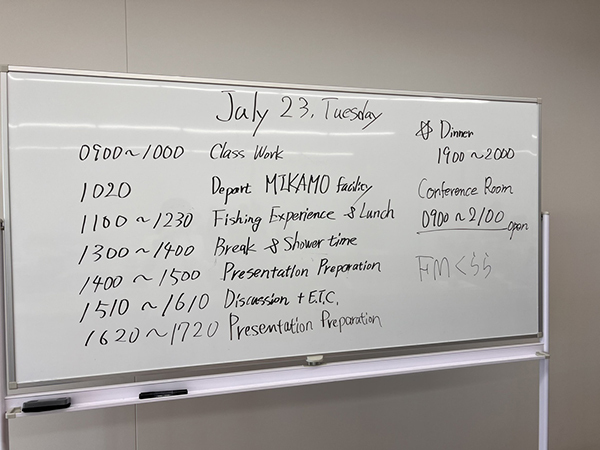 July 23, Tuesday
0900~1000 Class Work
1020 Depart MIKAMO facility
1100~1230 Fishing Experience & Lunch
1300~1400 Break & Shower time
1400~1500 Presentation Preparation
1510~1610 Discussion + E.T.C.
1620~1720 Presentation Preparation
Dinner
1900~2000
Conference Room
0900~2100 open
FMくらら